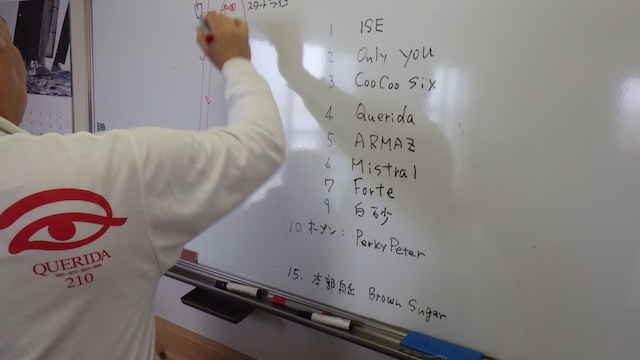 スタートライン
1 ISE
2 Only you
3 CooCoo Six
4 Querida
5 ARMAZ
6 Mistral
7 Forte
9 白砂
10 オープン: Perky Peter
15. 本部船 Brown Sugar
QUERIDA
210